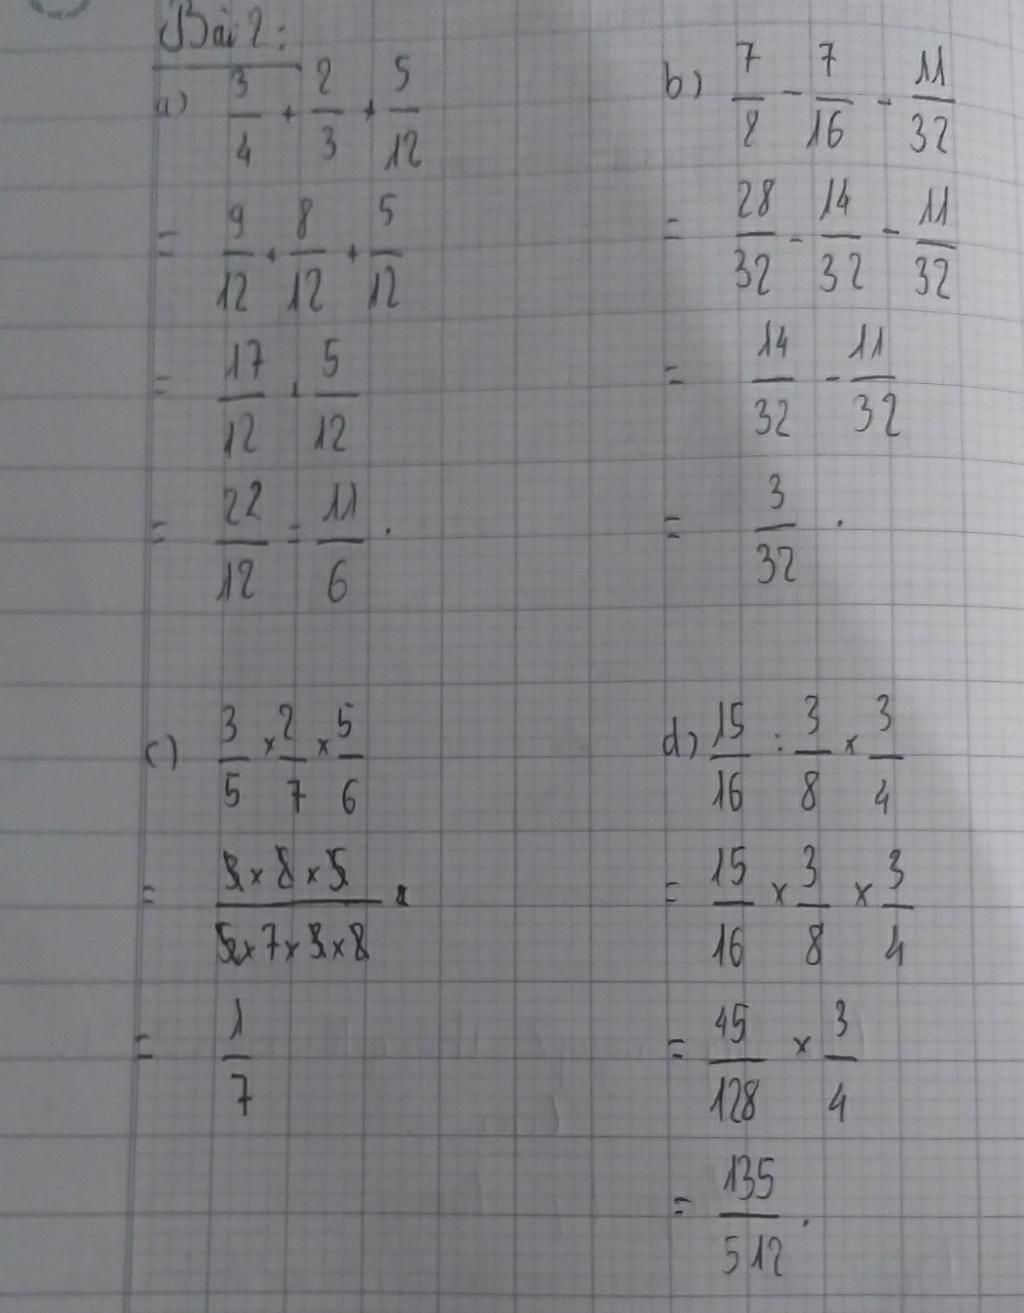 Bài 2:
a) 3/4 + 2/3 + 5/12
= 9/12 + 8/12 + 5/12
= 17/12 + 5/12
= 22/12 = 11/6 .
b) 7/8 - 7/16 - 11/32
= 28/32 - 14/32 - 11/32
= 14/32 - 11/32
= 3/32 .
c) 3/5 × 2/7 × 5/6
= 3 × 2 × 5 / 5 × 7 × 3 × 2
= 1/7
d) 15/16 : 3/8 × 3/4
= 15/16 × 3/8 × 3/4
= 45/128 × 3/4
= 135/512 .